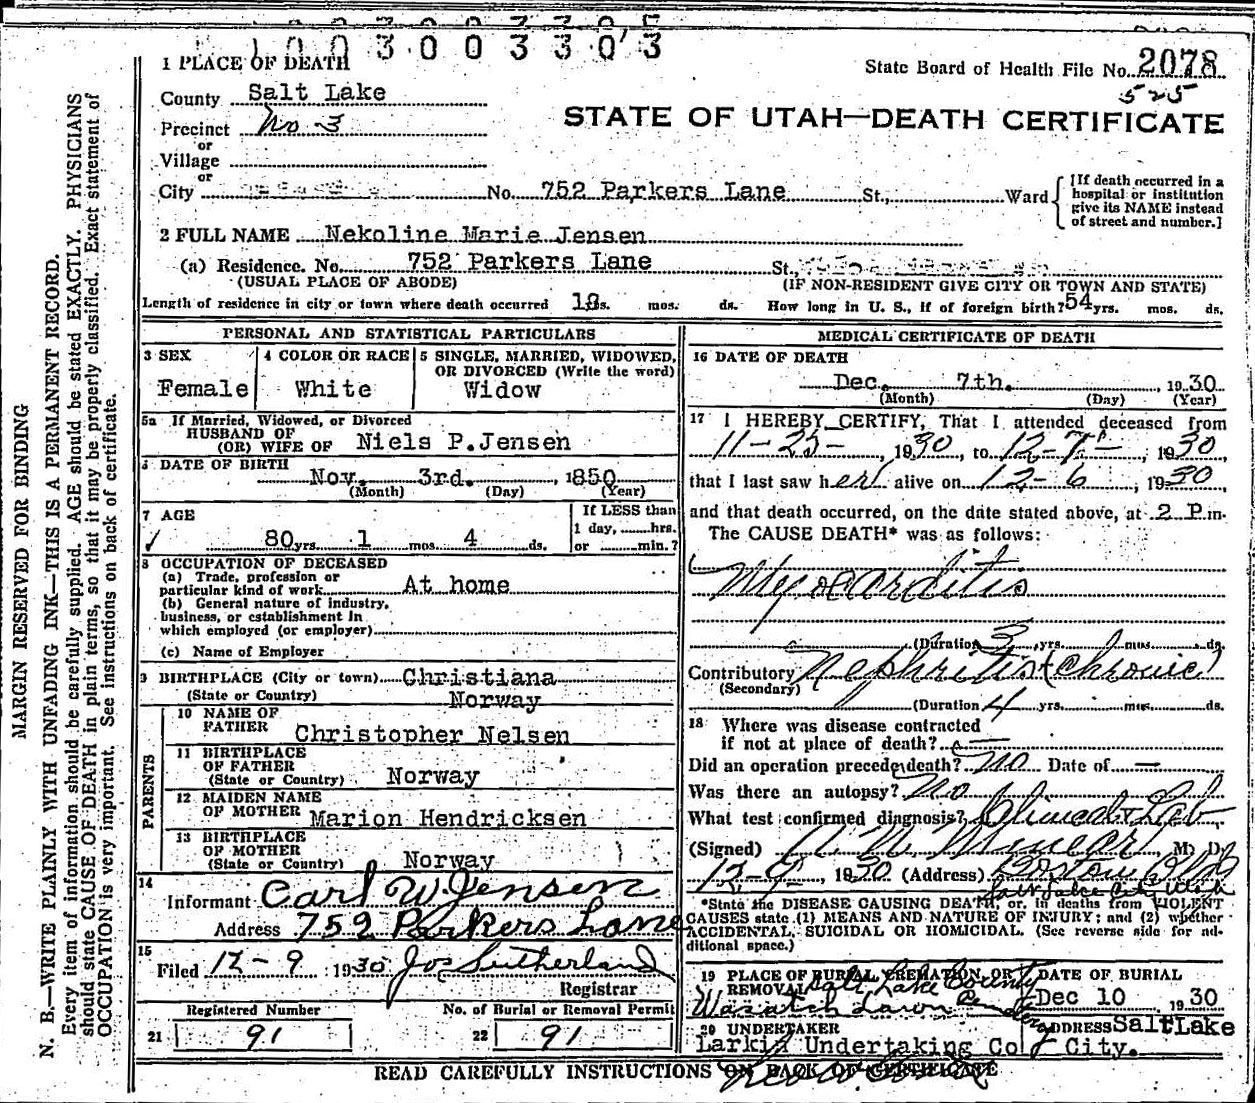 1003003303
1 PLACE OF DEATH
State Board of Health File No. 2078
525
County Salt Lake
STATE OF UTAH—DEATH CERTIFICATE
Precinct No 3
or
Village
or
City No. 752 Parkers Lane St., Ward
[If death occurred in a hospital or institution give its NAME instead of street and number.]
2 FULL NAME Nekoline Marie Jensen
(a) Residence. No. 752 Parkers Lane St.,
(USUAL PLACE OF ABODE) (IF NON-RESIDENT GIVE CITY OR TOWN AND STATE)
Length of residence in city or town where death occurred yrs. mos. ds. How long in U. S., if of foreign birth? 54 yrs. mos. ds.
PERSONAL AND STATISTICAL PARTICULARS
3 SEX 4 COLOR OR RACE 5 SINGLE, MARRIED, WIDOWED, OR DIVORCED (Write the word)
Female White Widow
5a If Married, Widowed, or Divorced
HUSBAND OF
(OR) WIFE OF Niels P.Jensen
6 DATE OF BIRTH
Nov. 3rd. , 1850
(Month) (Day) (Year)
7 AGE If LESS than
1 day, hrs.
80 yrs. 1 mos. 4 ds. or min.?
8 OCCUPATION OF DECEASED
(a) Trade, profession or
particular kind of work At home
(b) General nature of industry,
business, or establishment in
which employed (or employer)
(c) Name of Employer
9 BIRTHPLACE (City or town) Christiana
(State or Country) Norway
PARENTS
10 NAME OF
FATHER Christopher Nelsen
11 BIRTHPLACE
OF FATHER
(State or Country) Norway
12 MAIDEN NAME
OF MOTHER Marion Hendricksen
13 BIRTHPLACE
OF MOTHER
(State or Country) Norway
14
Informant Carl W Jensen
Address 752 Parkers Lane
15
Filed 12-9 1930 Jos Sutherland
Registrar
Registered Number No. of Burial or Removal Permit
21 91 22 91
MEDICAL CERTIFICATE OF DEATH
16 DATE OF DEATH
Dec. 7th. , 1930
(Month) (Day) (Year)
17 I HEREBY CERTIFY, That I attended deceased from
11-25- , 1930, to 12-7- , 1930
that I last saw her alive on 12-6 , 1930
and that death occurred, on the date stated above, at 2 P.m.
The CAUSE DEATH* was as follows:
Myocarditis
(Duration 3 yrs. mos. ds.
Contributory Nephritis (Chronic)
(Secondary)
(Duration 4 yrs. mos. ds.
18 Where was disease contracted
if not at place of death? —
Did an operation precede death? No Date of —
Was there an autopsy? No
What test confirmed diagnosis? Clinical & Lab
(Signed) M. D.
12-9 , 1930 (Address) Boston Bldg
Salt Lake City Utah
*State the DISEASE CAUSING DEATH, or, in deaths from VIOLENT
CAUSES state (1) MEANS AND NATURE OF INJURY; and (2) whether
ACCIDENTAL, SUICIDAL OR HOMICIDAL. (See reverse side for ad-
ditional space.)
19 PLACE OF BURIAL, CREMATION, OR REMOVAL Salt Lake County DATE OF BURIAL
Wasatch Lawn Cemetery Dec 10 1930
20 UNDERTAKER ADDRESS Salt Lake
Larkin Undertaking Co City.
READ CAREFULLY INSTRUCTIONS ON BACK OF CERTIFICATE
MARGIN RESERVED FOR BINDING
N. B.—WRITE PLAINLY WITH UNFADING INK—THIS IS A PERMANENT RECORD.
Every item of information should be carefully supplied. AGE should be stated EXACTLY. PHYSICIANS
should state CAUSE OF DEATH in plain terms, so that it may be properly classified. Exact statement of
OCCUPATION is very important. See instructions on back of certificate.